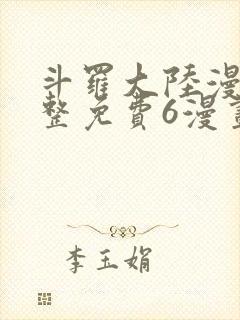 斗羅大陸漫
整免費6漫畫
李玉娟